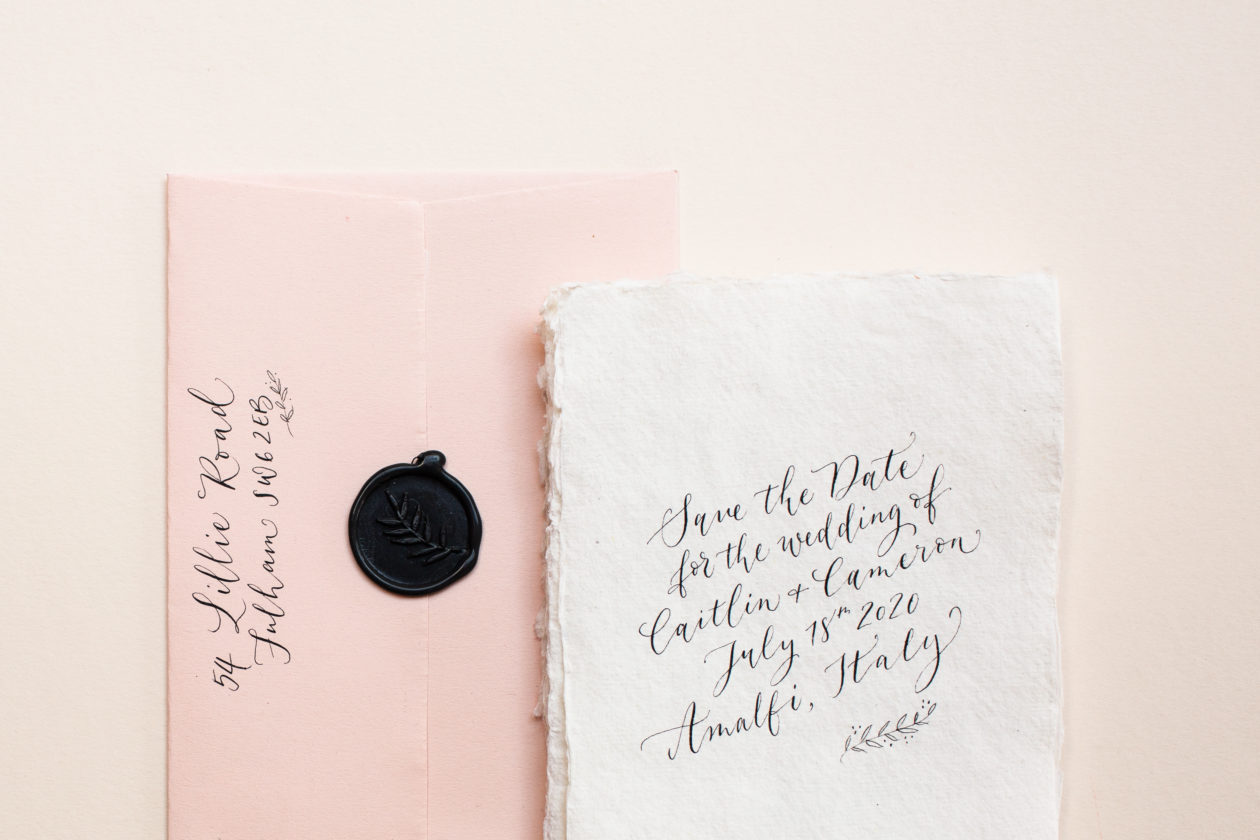 54 Lillie Road
Fulham SW6 2EB
Save the Date
for the wedding of
Caitlin + Cameron
July 18th 2020
Amalfi, Italy